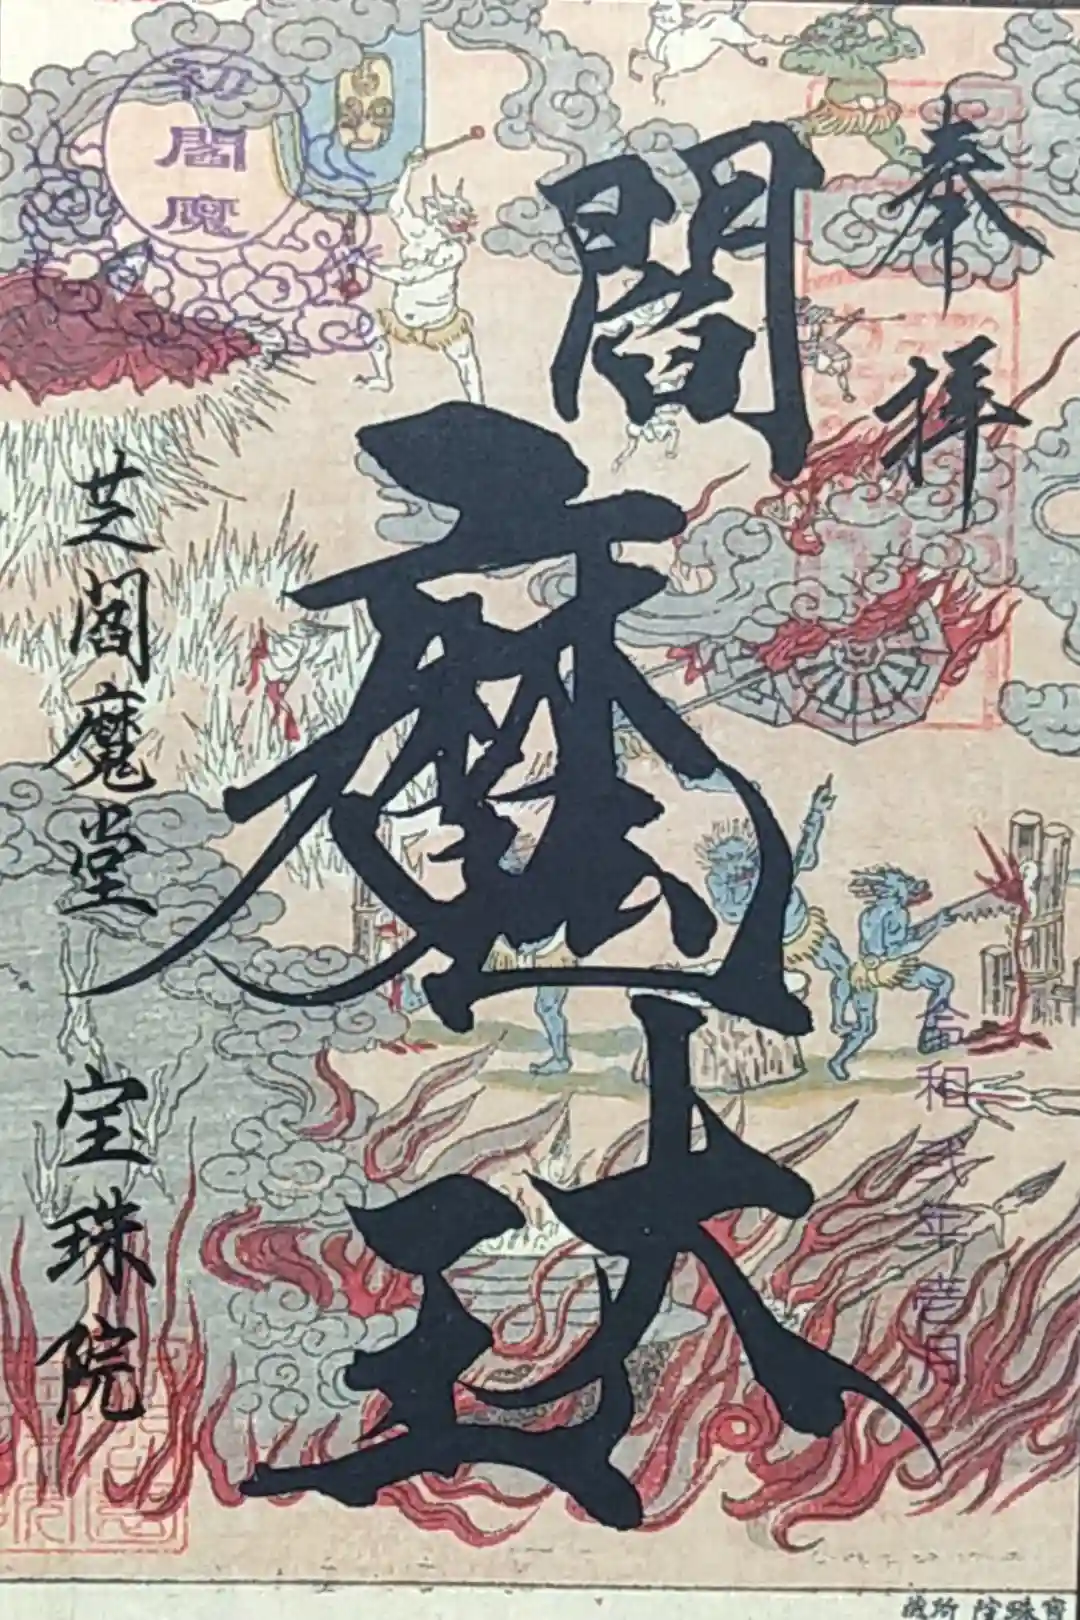 奉拝
閻魔王
令和弐年壱月
初閻魔
芝閻魔堂 宝珠院